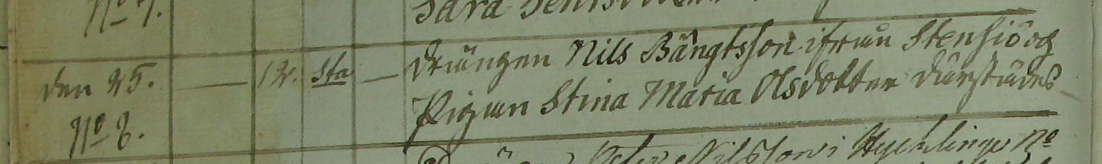 No 7. Sara
den 25. — 12. Sta — Drängen Nils Bängtsson ifrån Stensiö og
No 8. Pigan Stina Maria Olsdotter därstädes
Nilsson i No